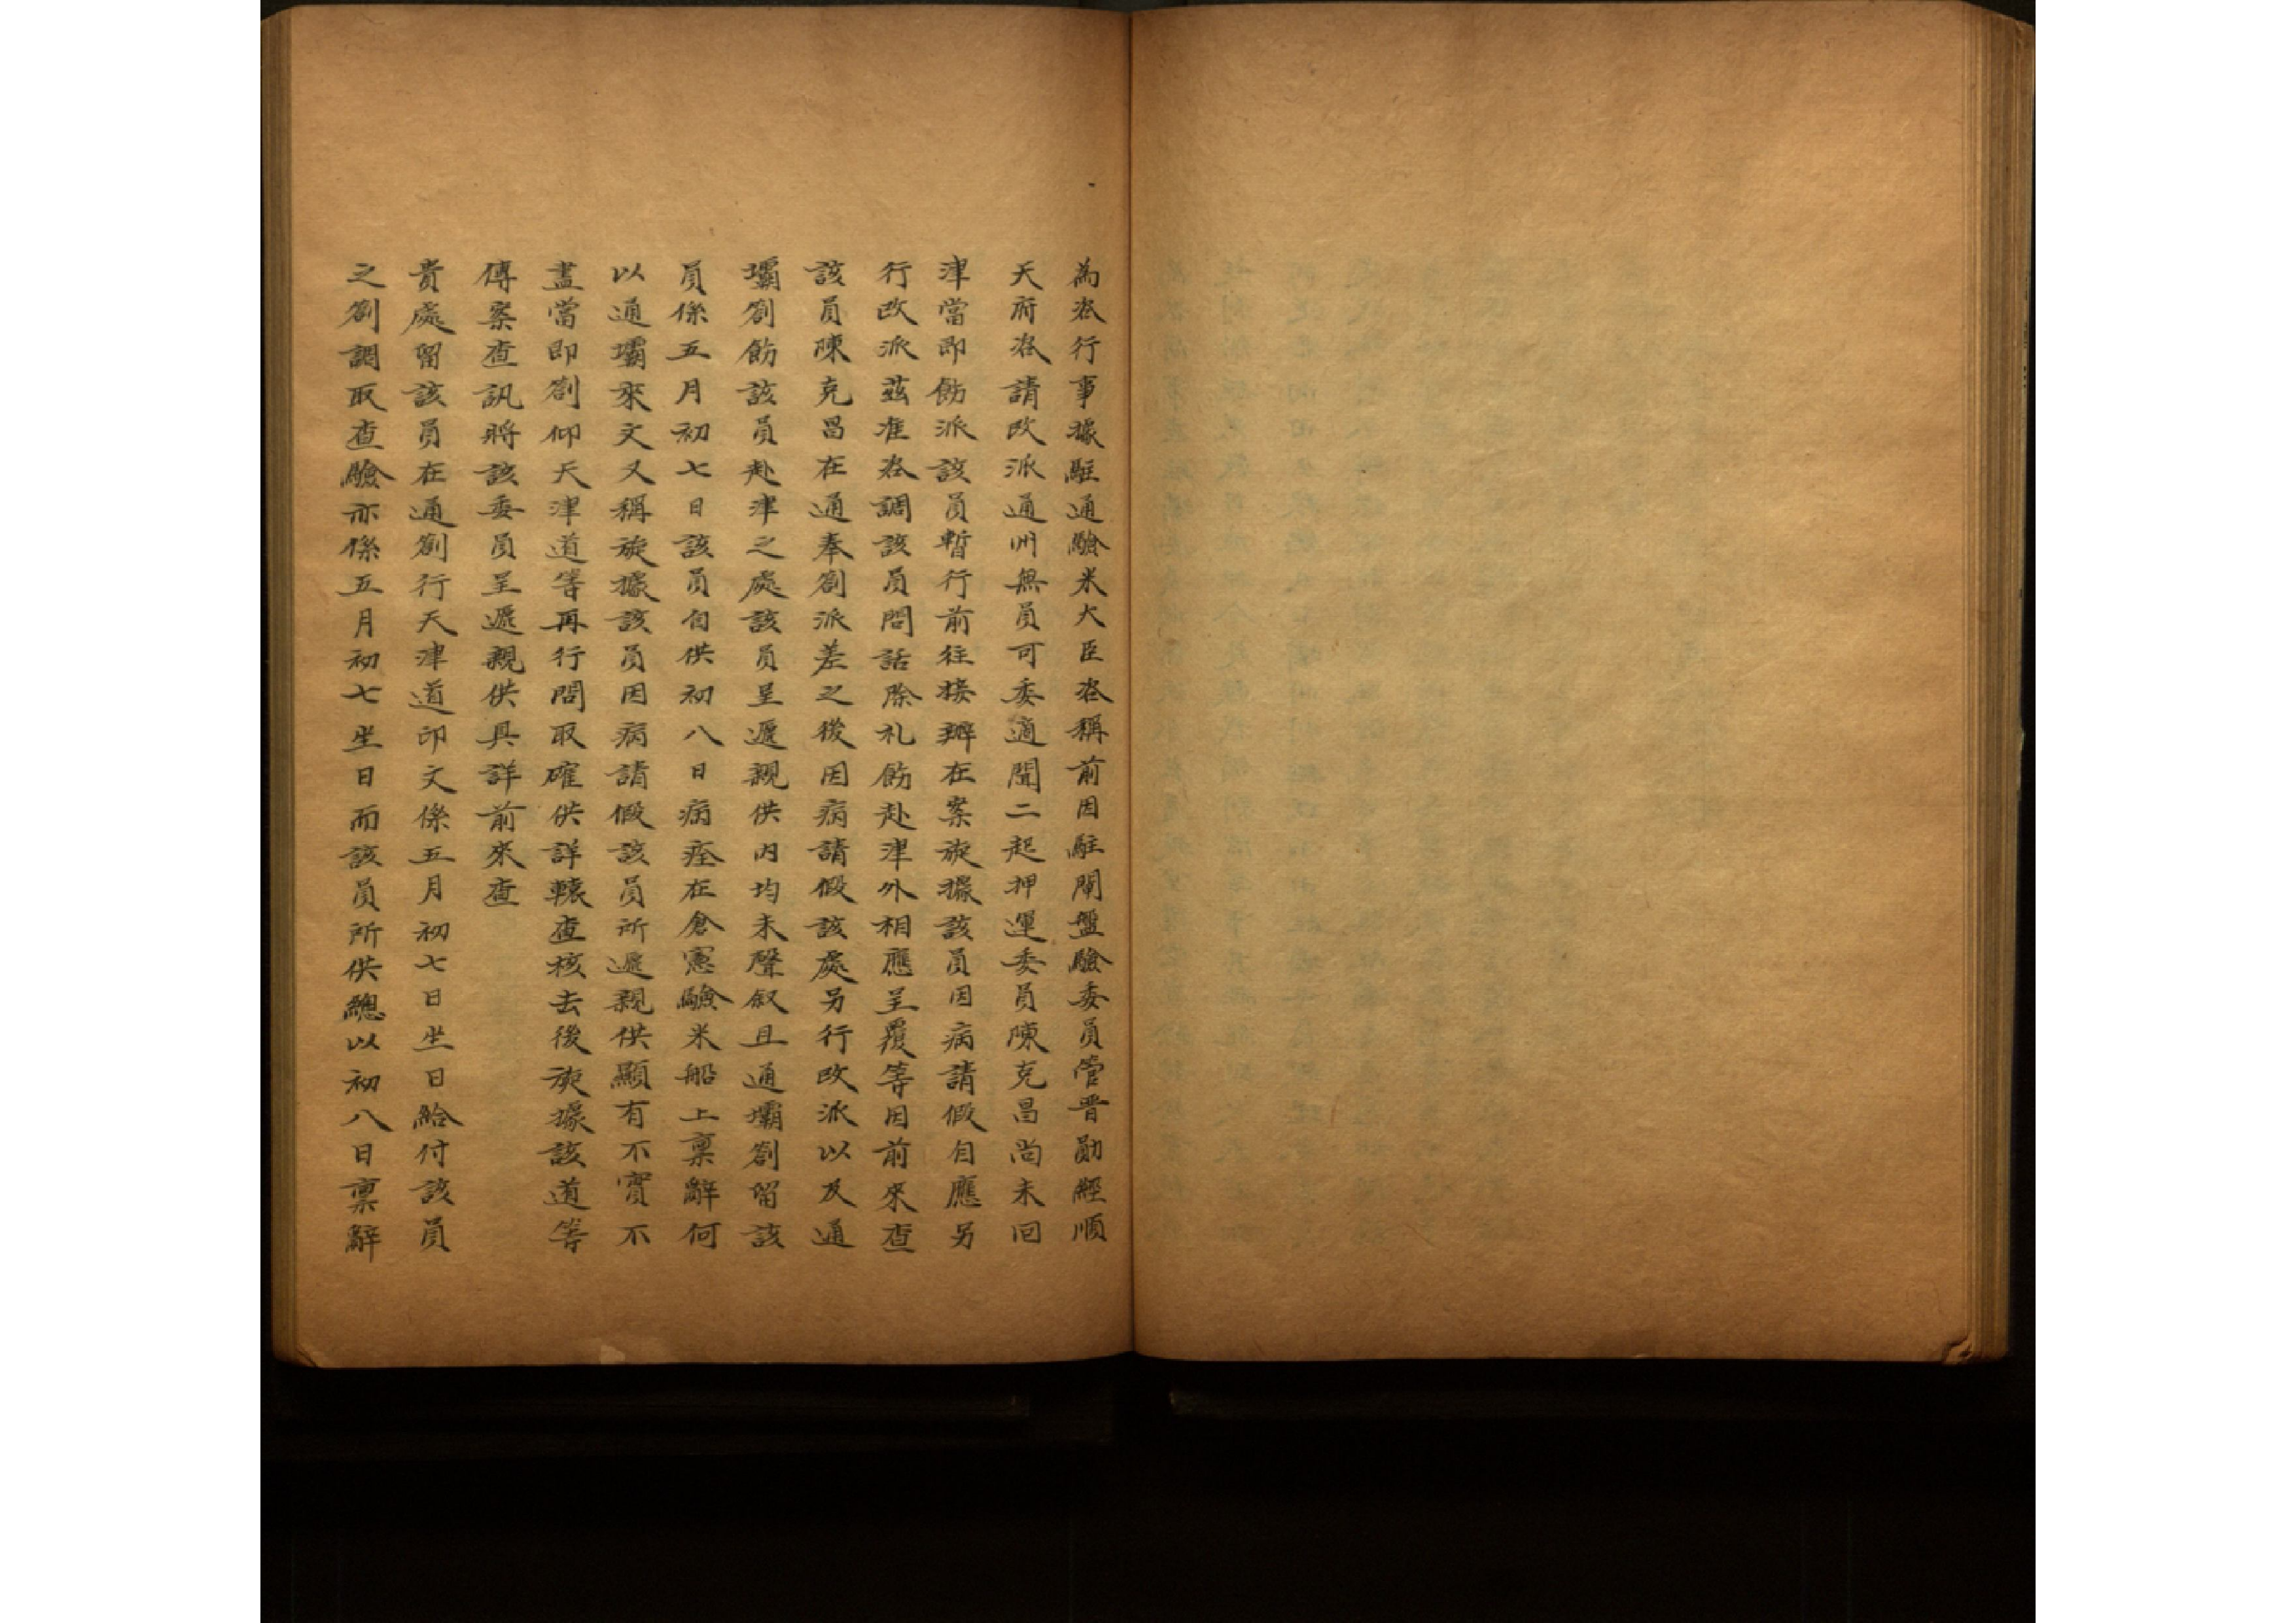 為咨行事據駐通驗米大臣咨稱前因駐閘盤驗委員管晋勛經順
天府咨請改派通州無員可委適聞二起押運委員陳克昌尚未回
津當即飭派該員暫行前往接辦在案旋據該員因病請假自應另
行改派茲准咨調該員問話除札飭赴津外相應呈覆等因前來查
該員陳克昌在通奉劄派差之後因病請假該處另行改派以及通
壩劄飭該員赴津之處該員呈遞親供内均未聲叙且通壩劄留該
員係五月初七日該員自供初八日病痊在倉憲驗米船上稟辭何
以通壩來文又稱旋據該員因病請假該員所遞親供顯有不實不
盡當即劄仰天津道等再行問取確供詳轅查核去後旋據該道等
傳案查訊將該委員呈遞親供具詳前來查
貴處留該員在通劄行天津道印文係五月初七日坐日給付該員
之劄調取查驗亦係五月初七坐日而該員所供總以初八日稟辭